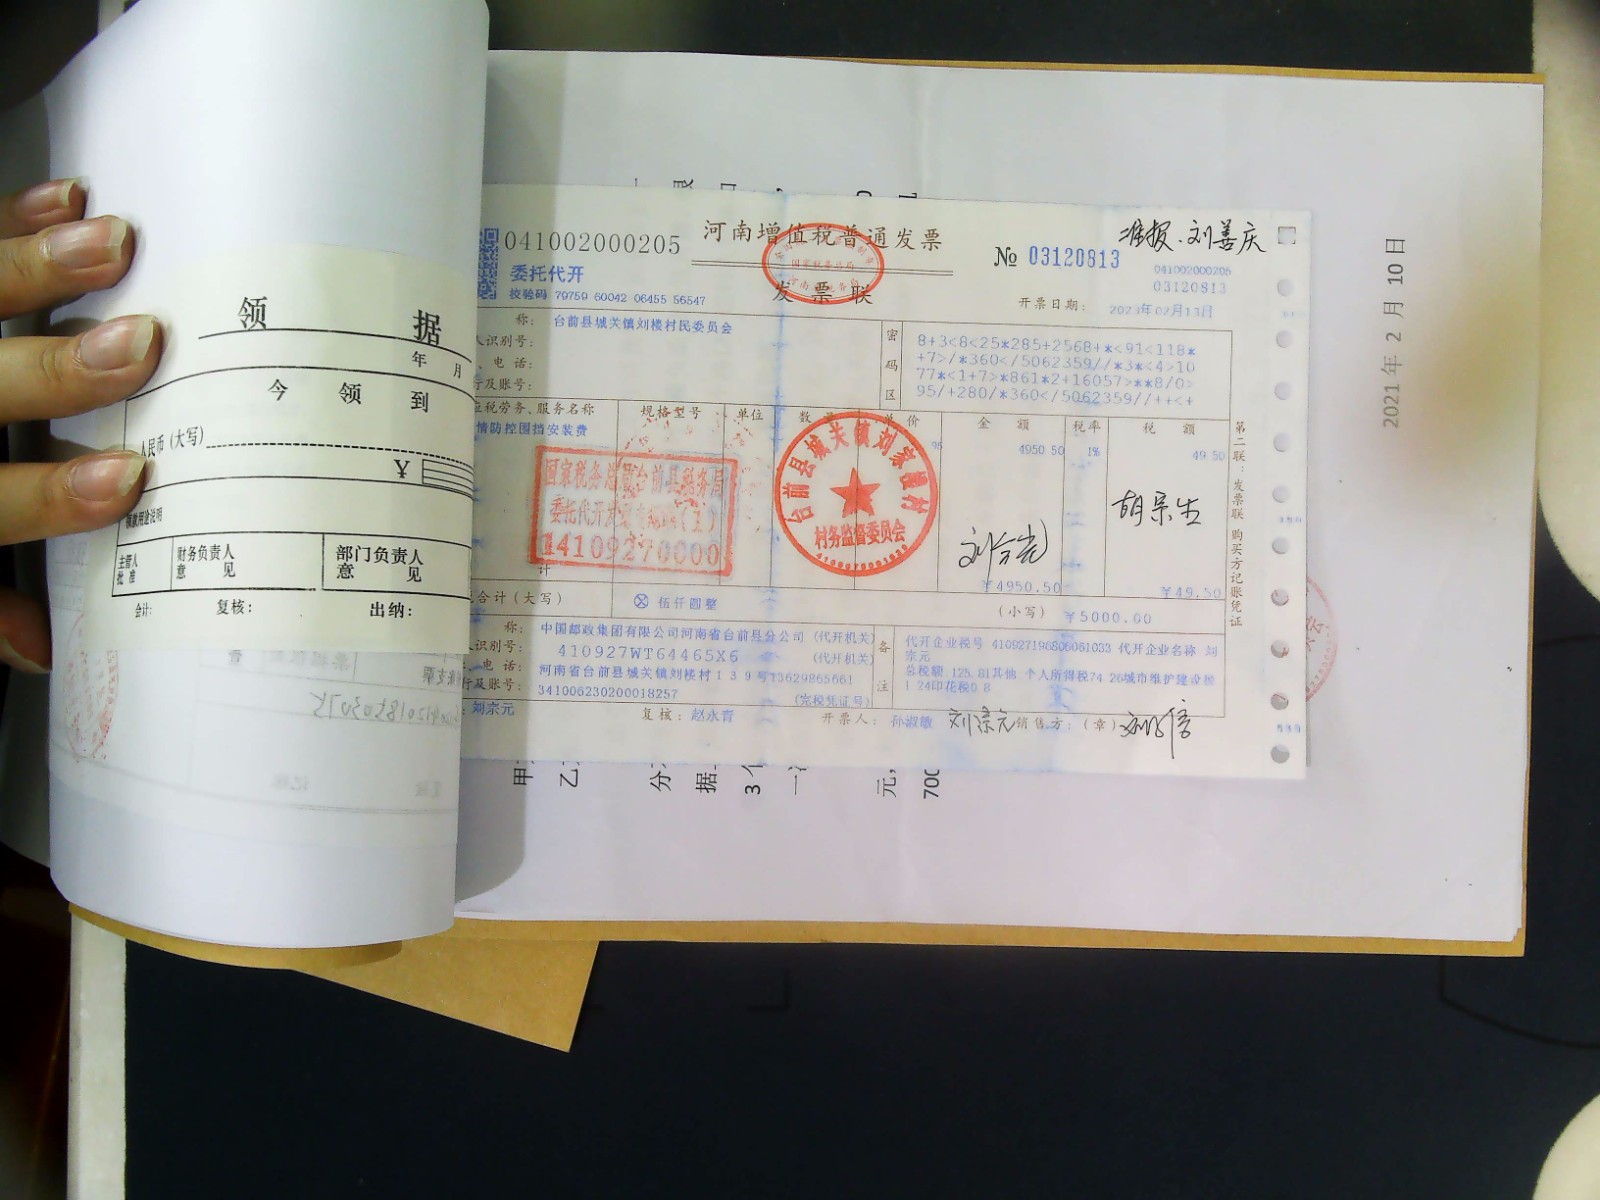 领 据
年 月
今 领 到
人民币（大写）
¥
领款用途说明
主管人批准
财务负责人意见
部门负责人意见
会计：
复核：
出纳：
041002000205
河南增值税普通发票
发票联
№ 03120813
准报.刘善庆
041002000205
03120813
委托代开
校验码 79759 60042 06455 56547
开票日期：
2023年02月13日
称： 台前县城关镇刘楼村民委员会
人识别号：
、电话：
行及账号：
密码区
8+3<8<25*285+2568+*<91<118*
+7>/*360</5062359//*3*<4>10
77*<1+7>*861*2+16057>**8/0>
95/+280/*360</5062359//++<+
应税劳务、服务名称
规格型号
单位
数量
单价
金 额
税率
税 额
情防控围挡安装费
4950 50
1%
49 50
委托代开
14109270000
村务监督委员会
胡宗生
计
¥4950.50
¥49.50
合计（大写）
ⓧ 伍仟圆整
（小写） ¥5000.00
第二联：发票联 购买方记账凭证
称： 中国邮政集团有限公司河南省台前县分公司 (代开机关)
识别号： 410927WT64465X6 (代开机关)
、电话： 河南省台前县城关镇刘楼村139号13629865661
行及账号： 341006230200018257 (完税凭证号)
备注
代开企业税号 410927196806061033 代开企业名称 刘
宗元
总税额 125.81其他 个人所得税74 26城市维护建设税
1 24印花税0 8
：刘宗元
复核：赵永青
开票人： 孙淑敏
刘宗元
销售方：（章）
2021 年 2 月 10 日
甲
乙
分
据
3个
一
元，
700